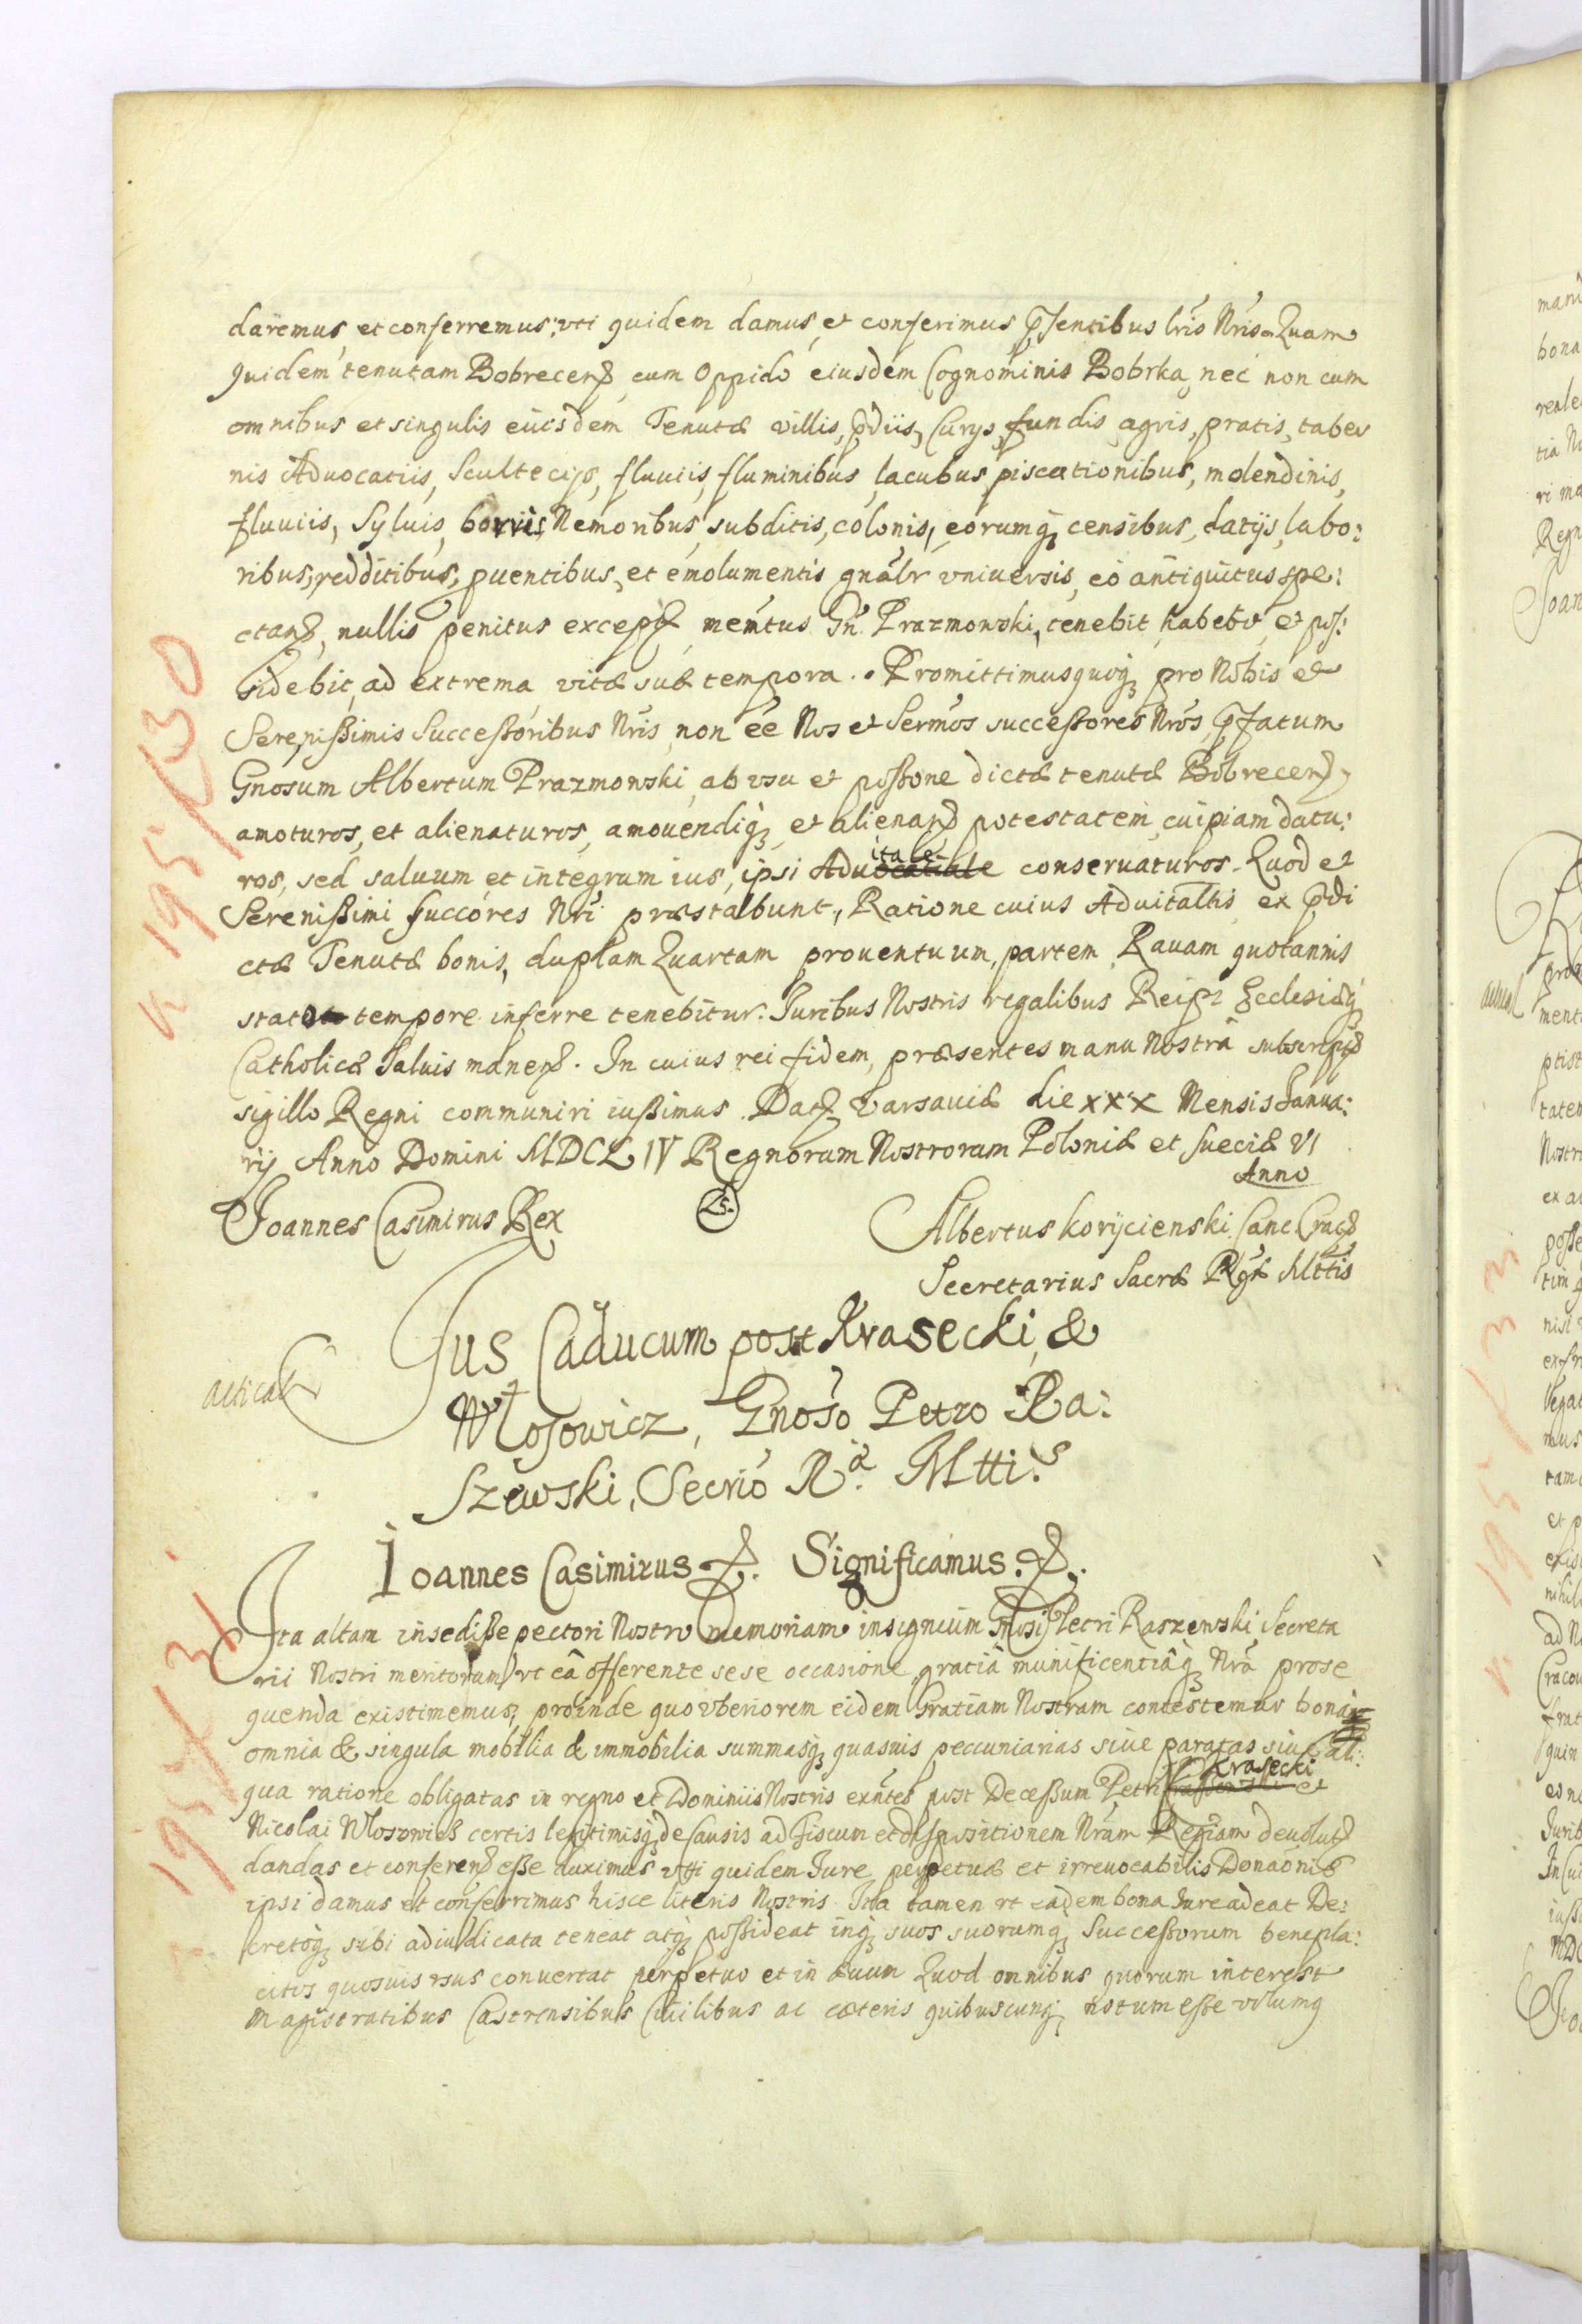 daremus, et conferremus; vti quidem damus, et conferimus pñtibus lris Nris. Quam
quidem tenutam Bobrecens, cum Oppido eiusdem Cognominis Bobrka, nec non cum
omnibus et singulis eiusdem Tenutæ villis, pdiis, Curys, fundis, agris, pratis, taber
nis Aduocatiis, Scultecijs, fluuiis, fluminibus, lacubus, piscationibus, molendinis,
fluuiis, Syluis, borris, Nemoribus, subditis, colonis, eorumq censibus, datijs, labo:
ribus, redditibus, puentibus, et emolumentis gnalr vniuersis, eo antiquitus spe:
ctans, nullis penitus except, memtus Gn. Prazmowski, tenebit habebit, et pos:
sidebit, ad extrema vitæ suæ tempora. Promittimusquoq pro Nobis et
Serenissimis Successoribus Nris, non ee Nos et Sermos successores Nros, pfatum
Gnosum Albertum Prazmowski, ab vsu et possone dictæ tenutæ Bobrecens,
amoturos, et alienaturos, amouendiq, et alienand potestatem cuipiam datu:
ros, sed saluum et integrum ius, ipsi Aduitale conseruaturos. Quod et
Serenissimi succores Nri præstabunt, Ratione cuius Aduitaltis ex pdi
ctæ Tenutæ bonis, duplam Quartam prouentuum, partem, Rauam quotannis
stato tempore inferre tenebitur. Iuribus Nostris regalibus Reipz Ecclesiæq
Catholicæ Saluis manens. In cuius rei fidem, præsentes manu Nostrâ subscript
sigillo Regni communiri iussimus. Dat Varsauiæ die XXX Mensis Janua:
rij Anno Domini MDCLIV Regnorum Nostrorum Poloniæ et Sueciæ VI
Anno
Joannes Casimirus Rex
LS.
Albertus Korijcienski Canc. Crac
Secretarius Sacræ Rgæ Mttis
acticat
Jus Caducum post Krasecki, &
Włosowicz, Gnoso Petro Ra:
szewski, Secrio Rª. Mttis
Ioannes Casimirus &. Significamus. &.
Ita altam insedisse pectori Nostro memoriam insignium Gnosi Petri Raszewski Secreta
rii Nostri meritorum, vt eâ offerente sese occasione, gratiâ munificentiâq Nrâ prose
quenda existimemus, proinde quo vberiorem eidem Gratiam Nostram contestemur bona
omnia & singula mobilia & immobilia summasq quasuis peccuniarias siue paratas siue ali:
qua ratione obligatas in regno et Dominiis Nostris exntes post Decessum Petri Krasecki et
Nicolai Włosowicz certis legitimisq de Causis ad fiscum et dispositionem Nram Regiam deuolut
dandas et conferend esse duximus vti quidem Iure perpetuæ et irreuocabilis Donaonis
ipsi damus et conferrimus hisce literis Nostris Ita tamen vt eadem bona Iure adeat De:
cretoq sibi adiudicata teneat atq possideat inq suos suorumq Successorum benepla:
citos quosuis vsus conuertat perpetuo et in æuum Quod omnibus quorum interest
Magistratibus Castrensibus Ciuilibus ac cæteris quibuscunq notum esse volumq
k 195/30
k 195/31